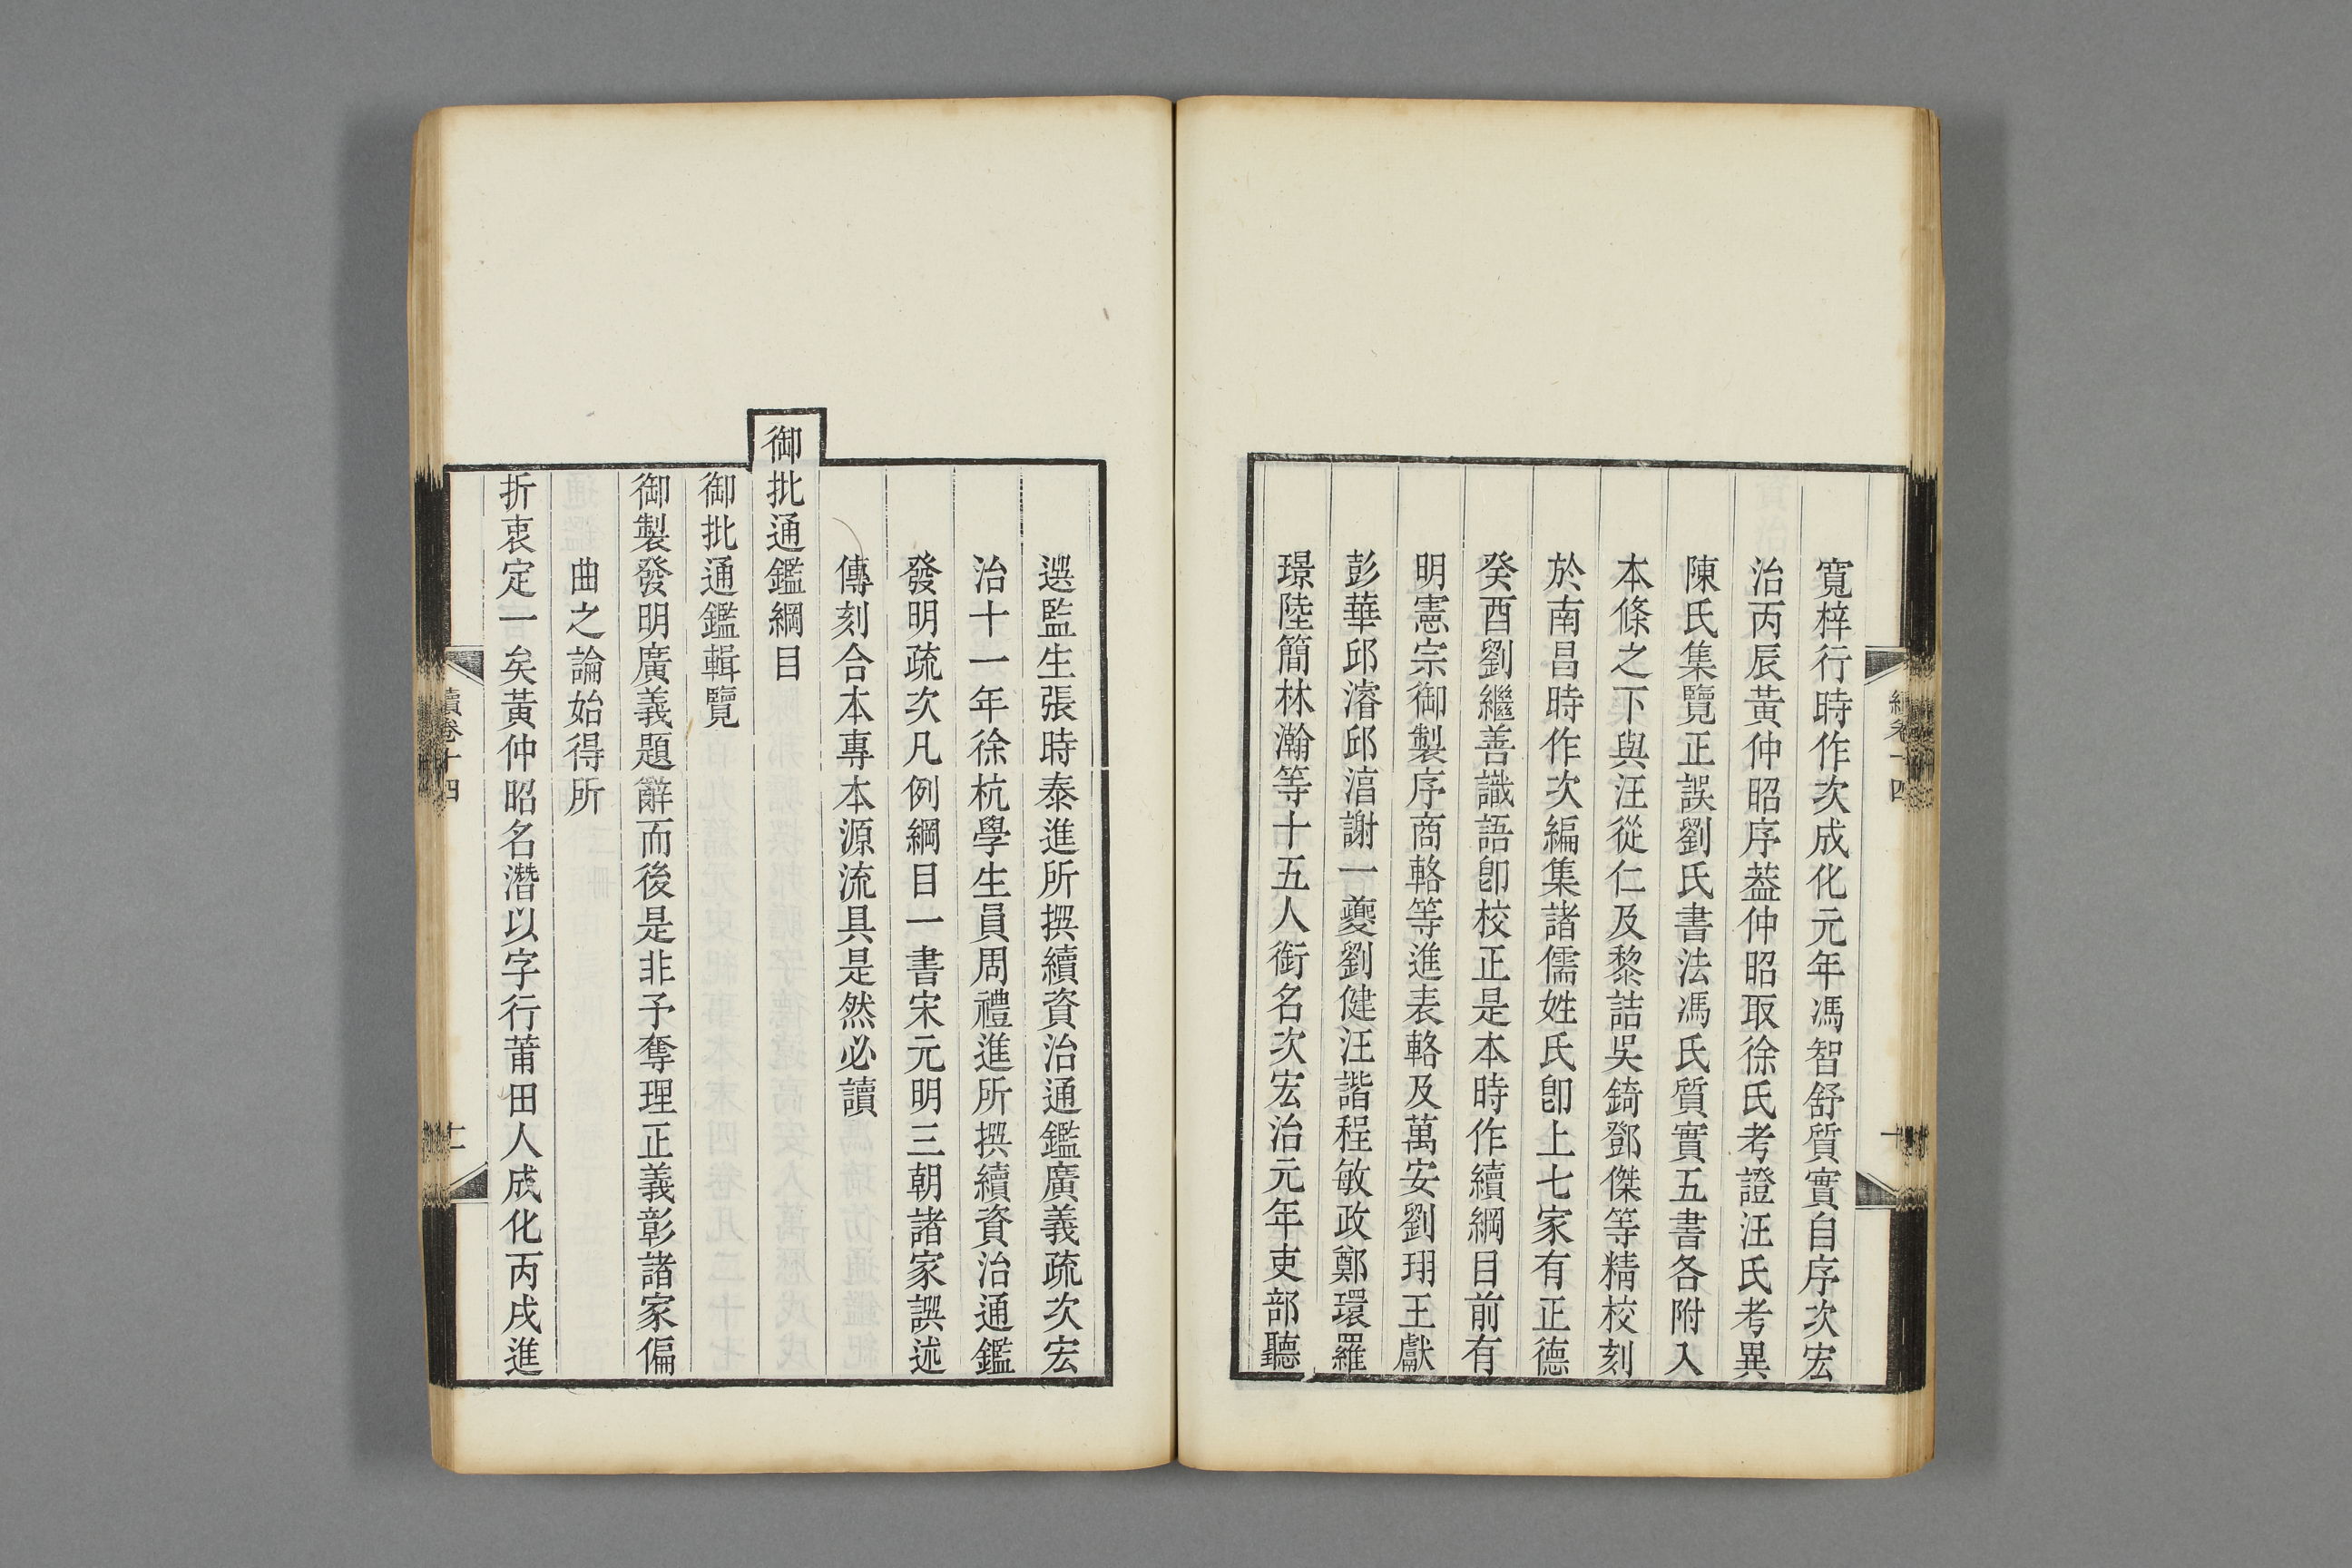 寬梓行時作次成化元年馮智舒質實自序次宏
治丙辰黃仲昭序葢仲昭取徐氏考證汪氏考異
陳氏集覽正誤劉氏書法馮氏質實五書各附入
本條之下與汪從仁及黎詰吳錡鄧傑等精校刻
於南昌時作次編集諸儒姓氏卽上七家有正德
癸酉劉繼善識語卽校正是本時作續綱目前有
明憲宗御製序商輅等進表輅及萬安劉珝王獻
彭華邱濬邱濬謝一夔劉健汪諧程敏政鄭環羅
璟陸簡林瀚等十五人銜名次宏治元年吏部聽
選監生張時泰進所撰續資治通鑑廣義疏次宏
治十一年徐杭學生員周禮進所撰續資治通鑑
發明疏次凡例綱目一書宋元明三朝諸家譔述
傳刻合本專本源流具是然必讀
御批通鑑綱目
御批通鑑輯覽
御製發明廣義題辭而後是非予奪理正義彰諸家偏
曲之論始得所
折衷定一矣黃仲昭名潛以字行莆田人成化丙戌進
續卷十四